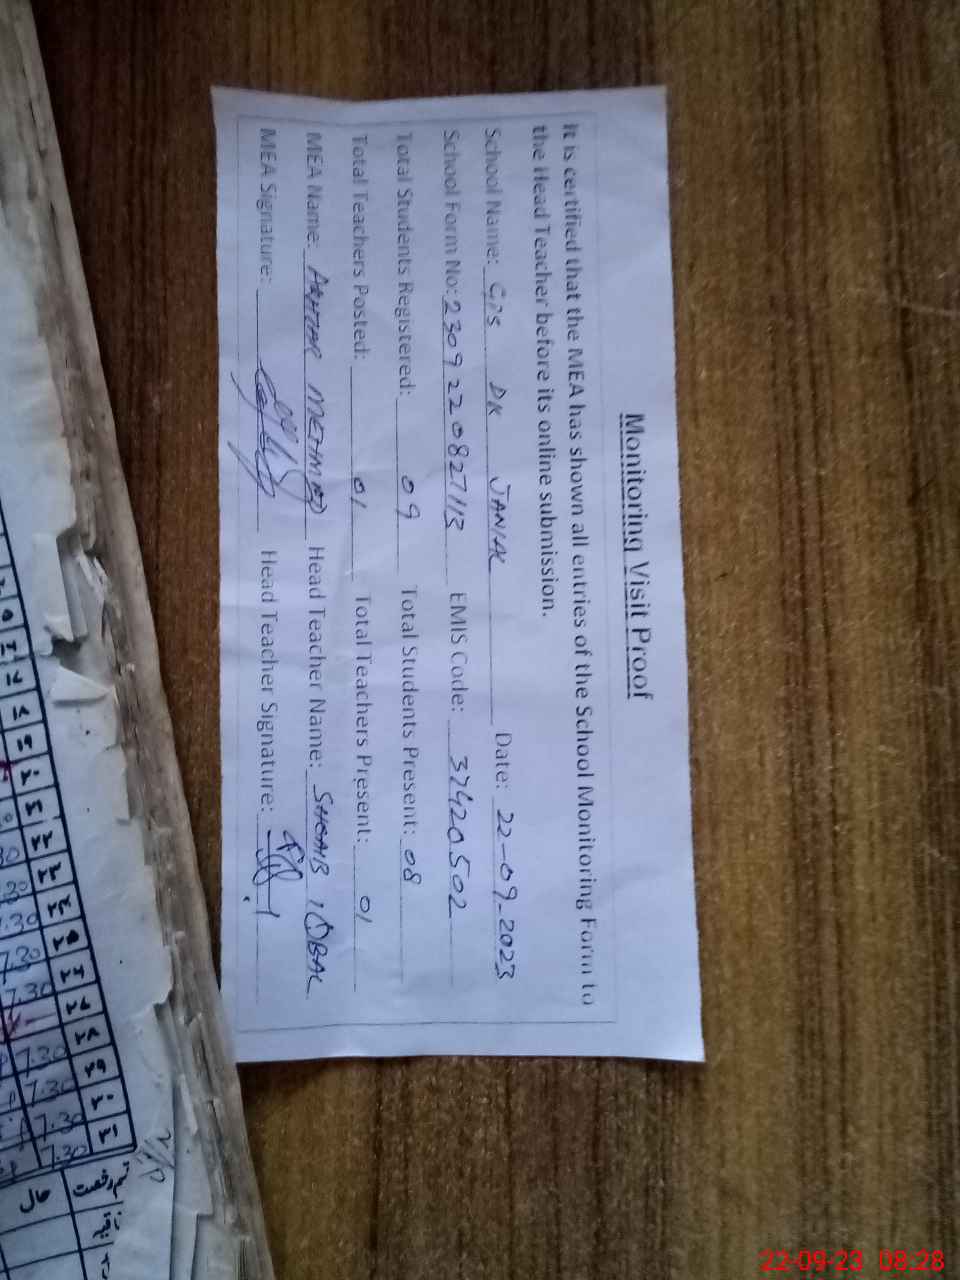 Monitoring Visit Proof
It is certified that the MEA has shown all entries of the School Monitoring Form to
the Head Teacher before its online submission.
School Name: GPS DK JANJAK Date: 22-09-2023
School Form No: 2309220827113 EMIS Code: 37420502
Total Students Registered: 09 Total Students Present: 08
Total Teachers Posted: 01 Total Teachers Present: 01
MEA Name: AKHTAR MEHMOOD Head Teacher Name: SHOAIB IQBAL
MEA Signature: Head Teacher Signature:
7.30
7.30
7.30
7.30
7.30
7.30
7.30
حال
22-09-23 08:28